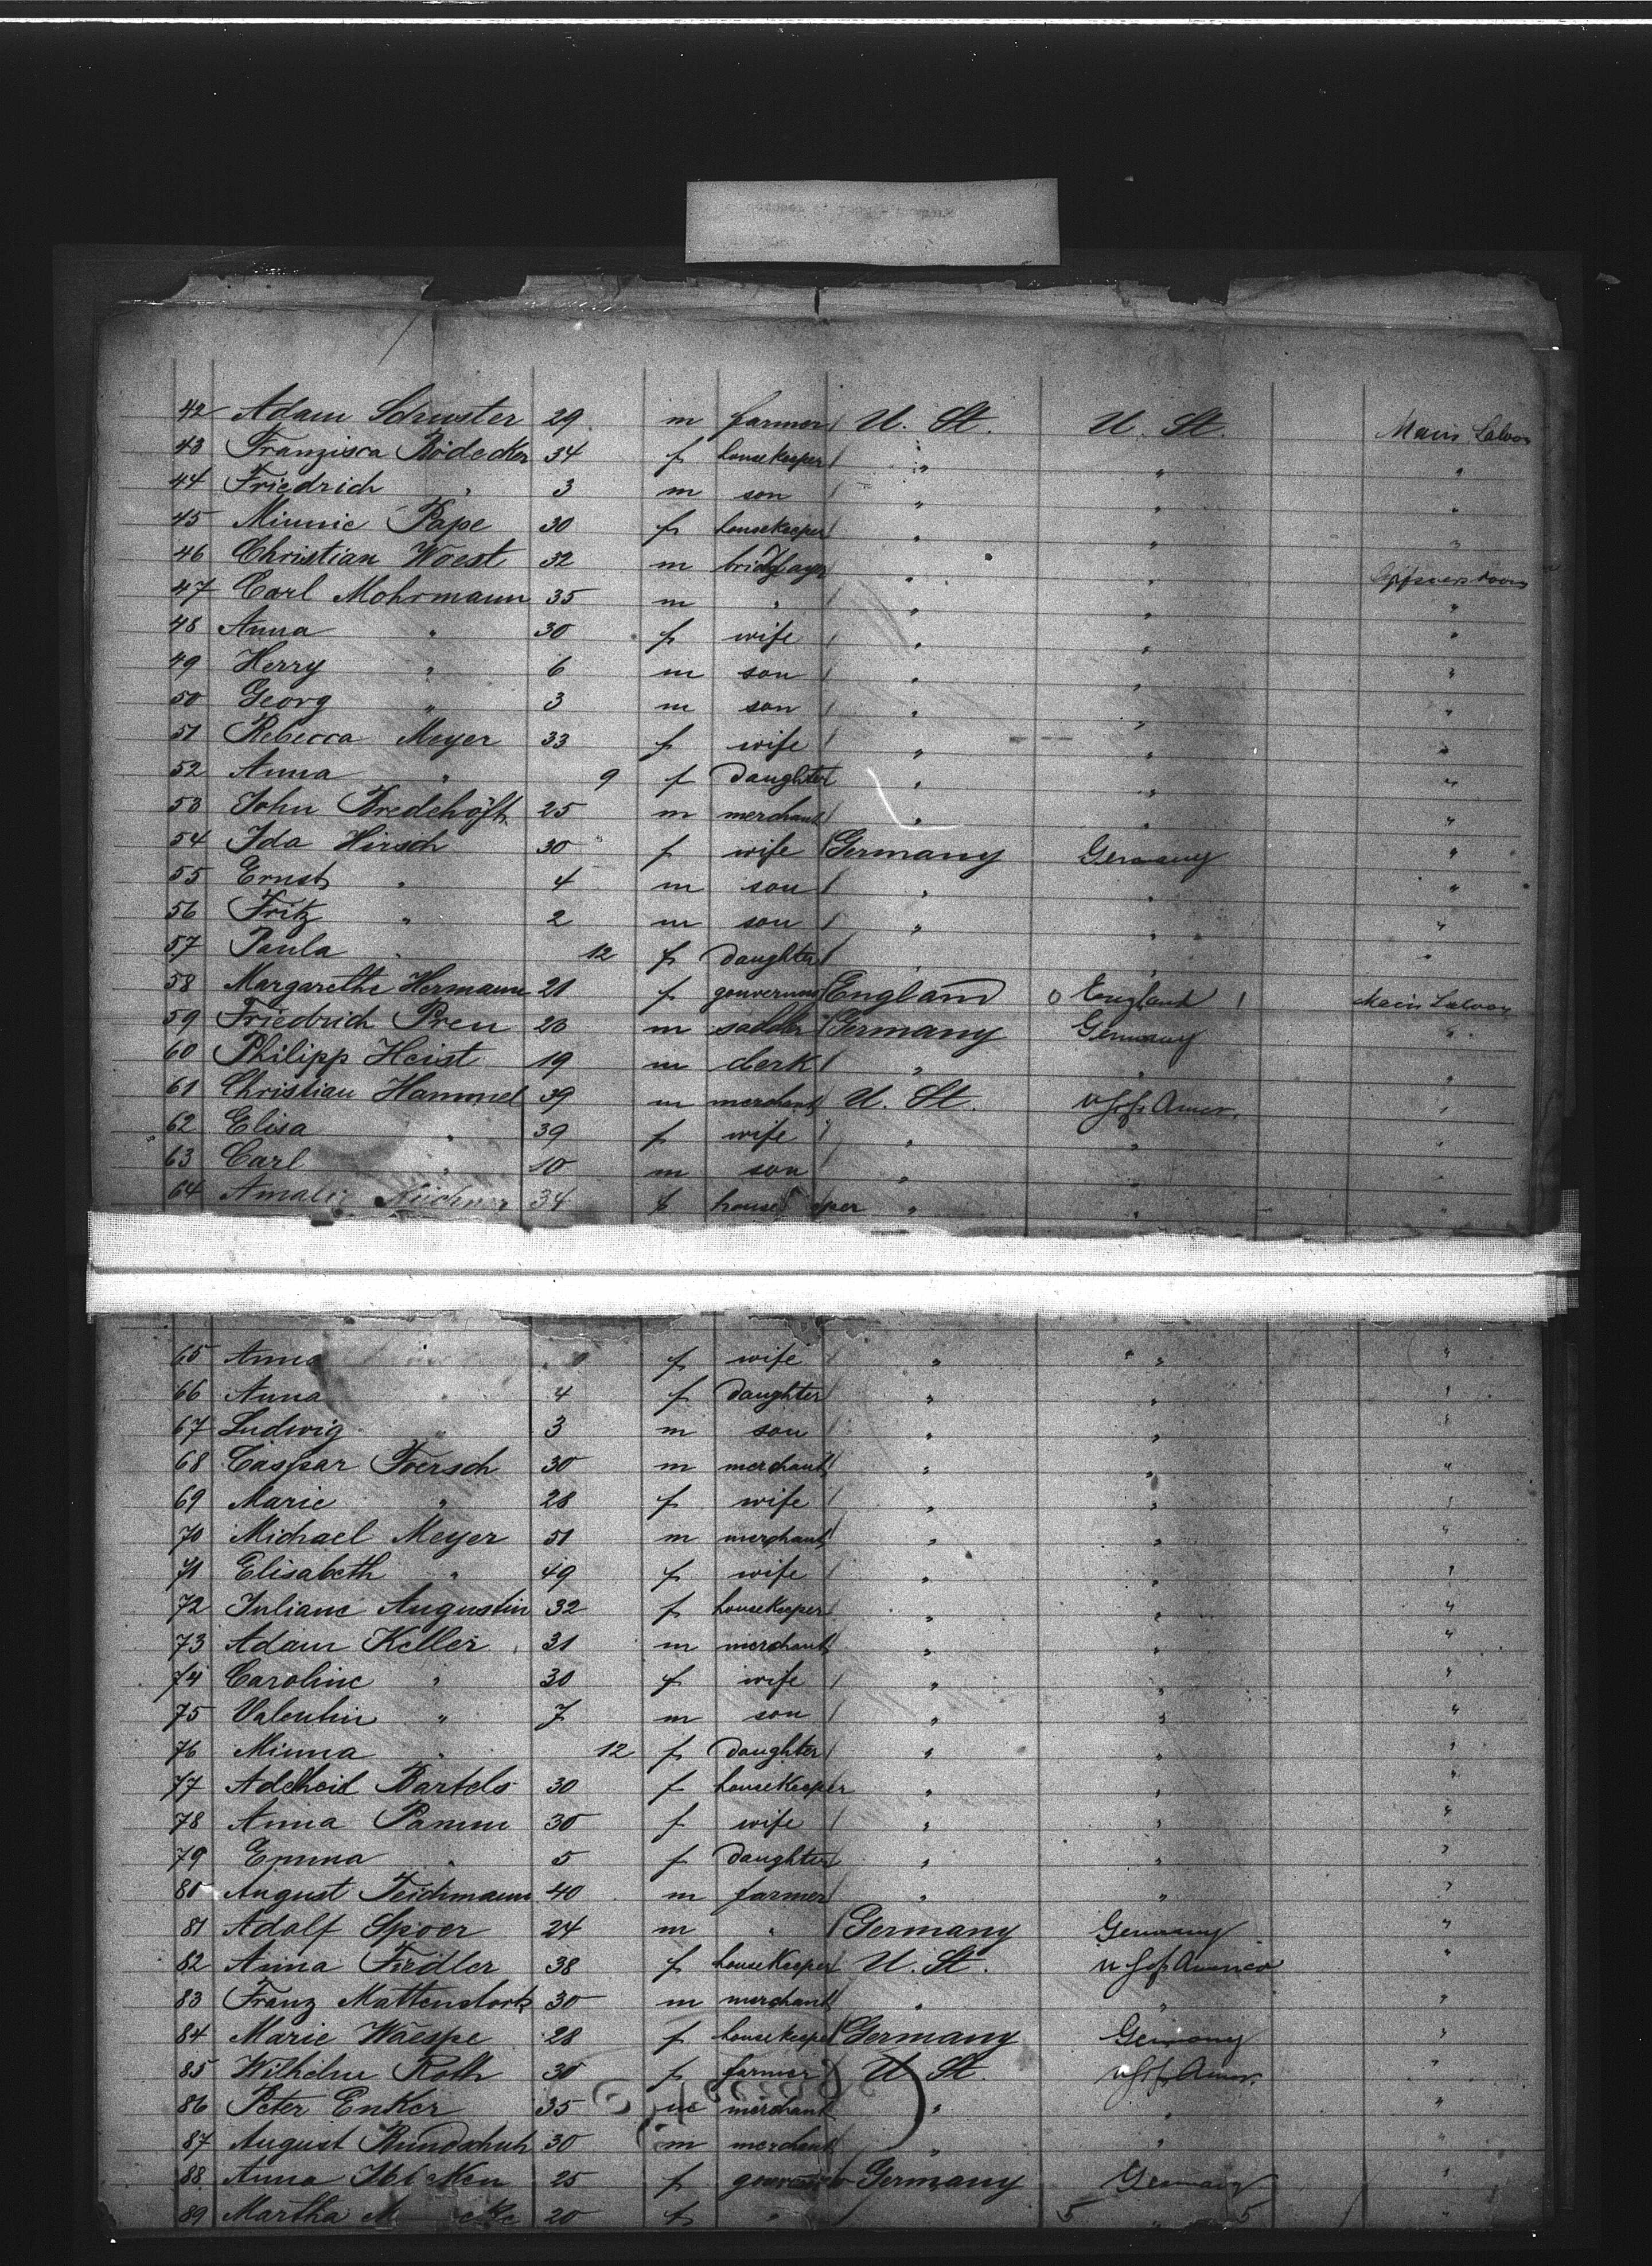 42 Adam Schuster 29 m farmer U. St. U. St. Main Saloon
43 Franzisca Bödecker 34 f housekeeper " " "
44 Friedrich " 3 m son " " "
45 Minnie Pape 30 f housekeeper " " "
46 Christian Woest 32 m " "
47 Carl Mohrmann 35 m " " " "
48 Anna " 30 f wife " " "
49 Herry " 6 m son " " "
50 Georg " 3 m son " " "
51 Rebecca Meyer 33 f wife " " "
52 Anna " 9 f daughter " " "
53 John Bredehöft 25 m merchant " " "
54 Ida Hirsch 30 f wife Germany Germany "
55 Ernst " 4 m son " " "
56 Fritz " 2 m son " " "
57 Paula " 12 f daughter " " "
58 Margarethe Hermann 21 f England England Main Saloon
59 Friedrich Preu m Germany Germany "
60 Philipp Heist 19 m clerk " " "
61 Christian Hammel 39 m merchant U. St. U S of Amer. "
62 Elisa " 39 f wife " " "
63 Carl " 10 m son " " "
64 Amalie 34 f " " "
65 Anna f wife " " "
66 Anna 4 f daughter " " "
67 Ludwig " 3 m son " " "
68 Caspar Foersch 30 m merchant " " "
69 Marie " 28 f wife " " "
70 Michael Meyer 51 m merchant " " "
71 Elisabeth " 49 f wife " " "
72 Juliane Augustin 32 f housekeeper " " "
73 Adam Keller 31 m merchant " " "
74 Caroline " 30 f wife " " "
75 Valentin " 7 m son " " "
76 Minna " 12 f daughter " " "
77 Adelheid Bartels 30 f housekeeper " " "
78 Anna Pamm 30 f wife " " "
79 Emma " 5 f daughter " " "
80 August Teichmann 40 m farmer " " "
81 Adolf Spoer 24 m " Germany Germany "
82 Anna Fiedler 38 f housekeeper U. St. U S of America "
83 Franz 30 m merchant " " "
84 Marie Waespe 28 f housekeeper Germany Germany "
85 Wilhelm Roth 30 f farmer U St. U S of Amer. "
86 Peter Enker 35 m merchant " " "
87 August Bundschuh 30 m merchant " " "
88 Anna 25 f Germany Germany "
89 Martha 20 f " 5 " 5 "